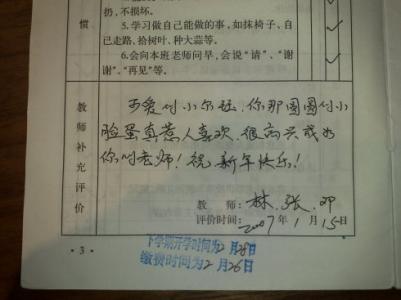 惯
扔,不损坏。
5.学习做自己能做的事,如抹椅子、自
己走路、拾树叶、种大蒜等。
6.会向本班老师问早,会说“请”、“谢
谢”、“再见”等。
教师补充评价
可爱的小尔,你那圆圆的小
脸蛋真惹人喜欢,很高兴成为
你的老师!祝新年快乐!
教 师:林、张、邓
评价时间:2007年1月15日
下学期开学时间为2月28日
缴费时间为2月26日
·3·